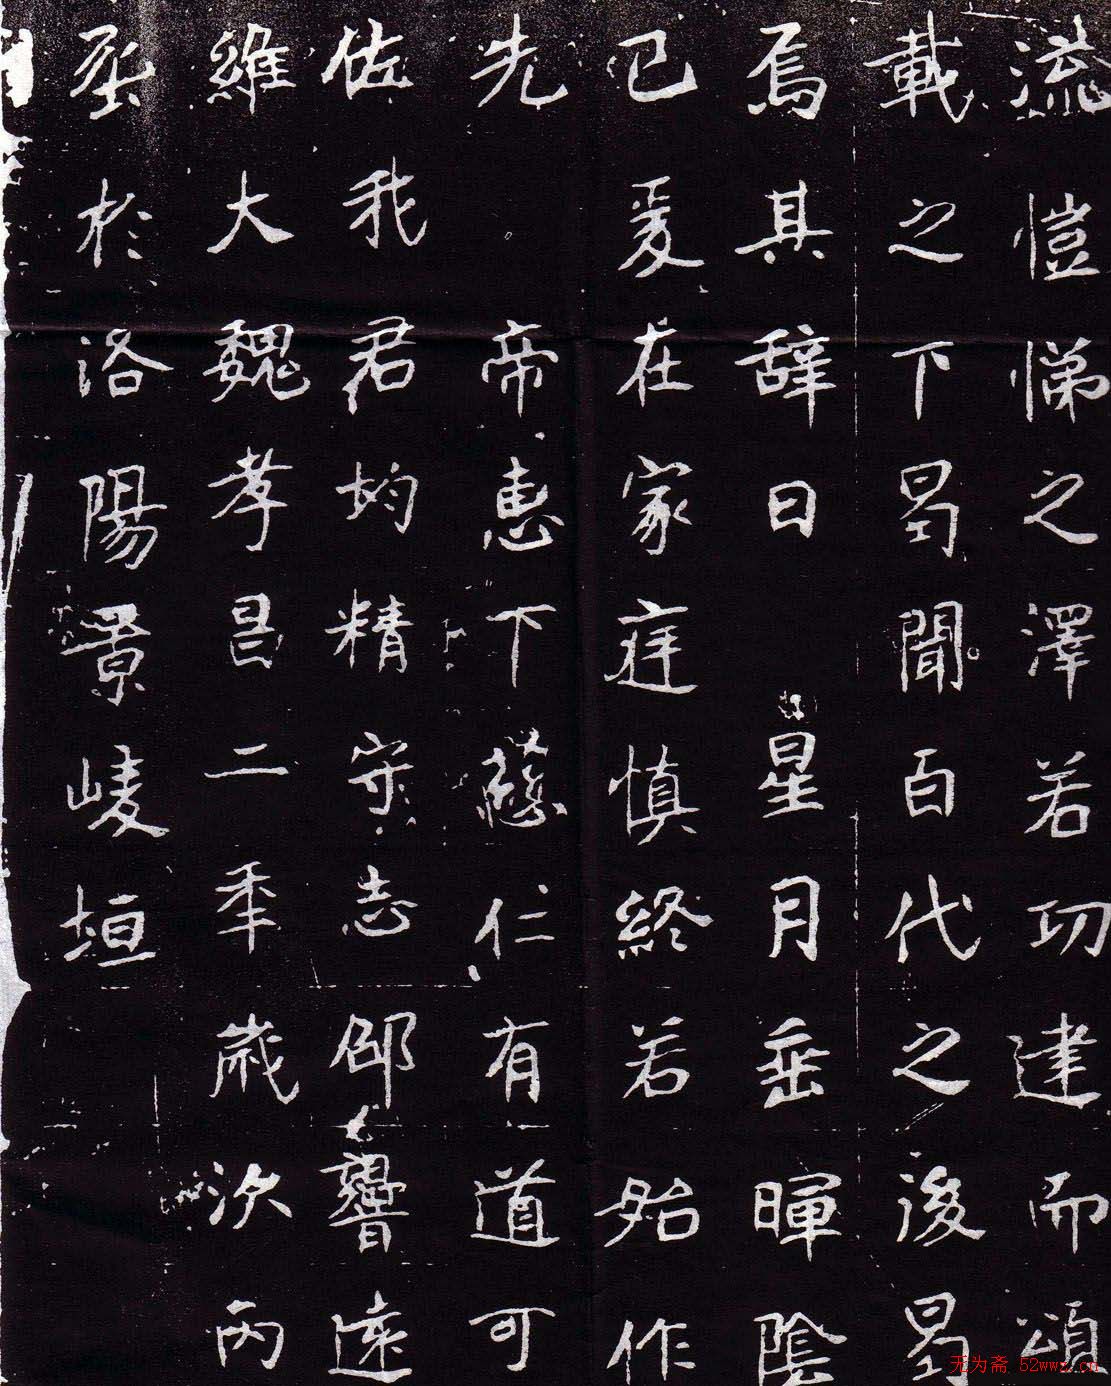 流愷悌之澤若功建而頌
載之下曷聞百代之後曷
焉其辞曰 星月垂暉陰
已爰在家庭慎終若始作
先 帝惠下仁有道可
佐我君均精守志邵響遠
維大魏孝昌二季歲次丙
於洛陽景崚垣
无为斋 52wwz.cn